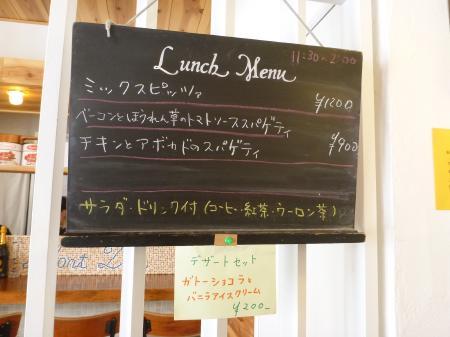 11:30~2:00
Lunch Menu
ミックスピッツァ ¥1200
ベーコンとほうれん草のトマトソーススパゲティ
チキンとアボカドのスパゲティ ¥900
サラダ・ドリンク付(コーヒー・紅茶・ウーロン茶)
デザートセット
ガトーショコラと
バニラアイスクリーム
¥200-